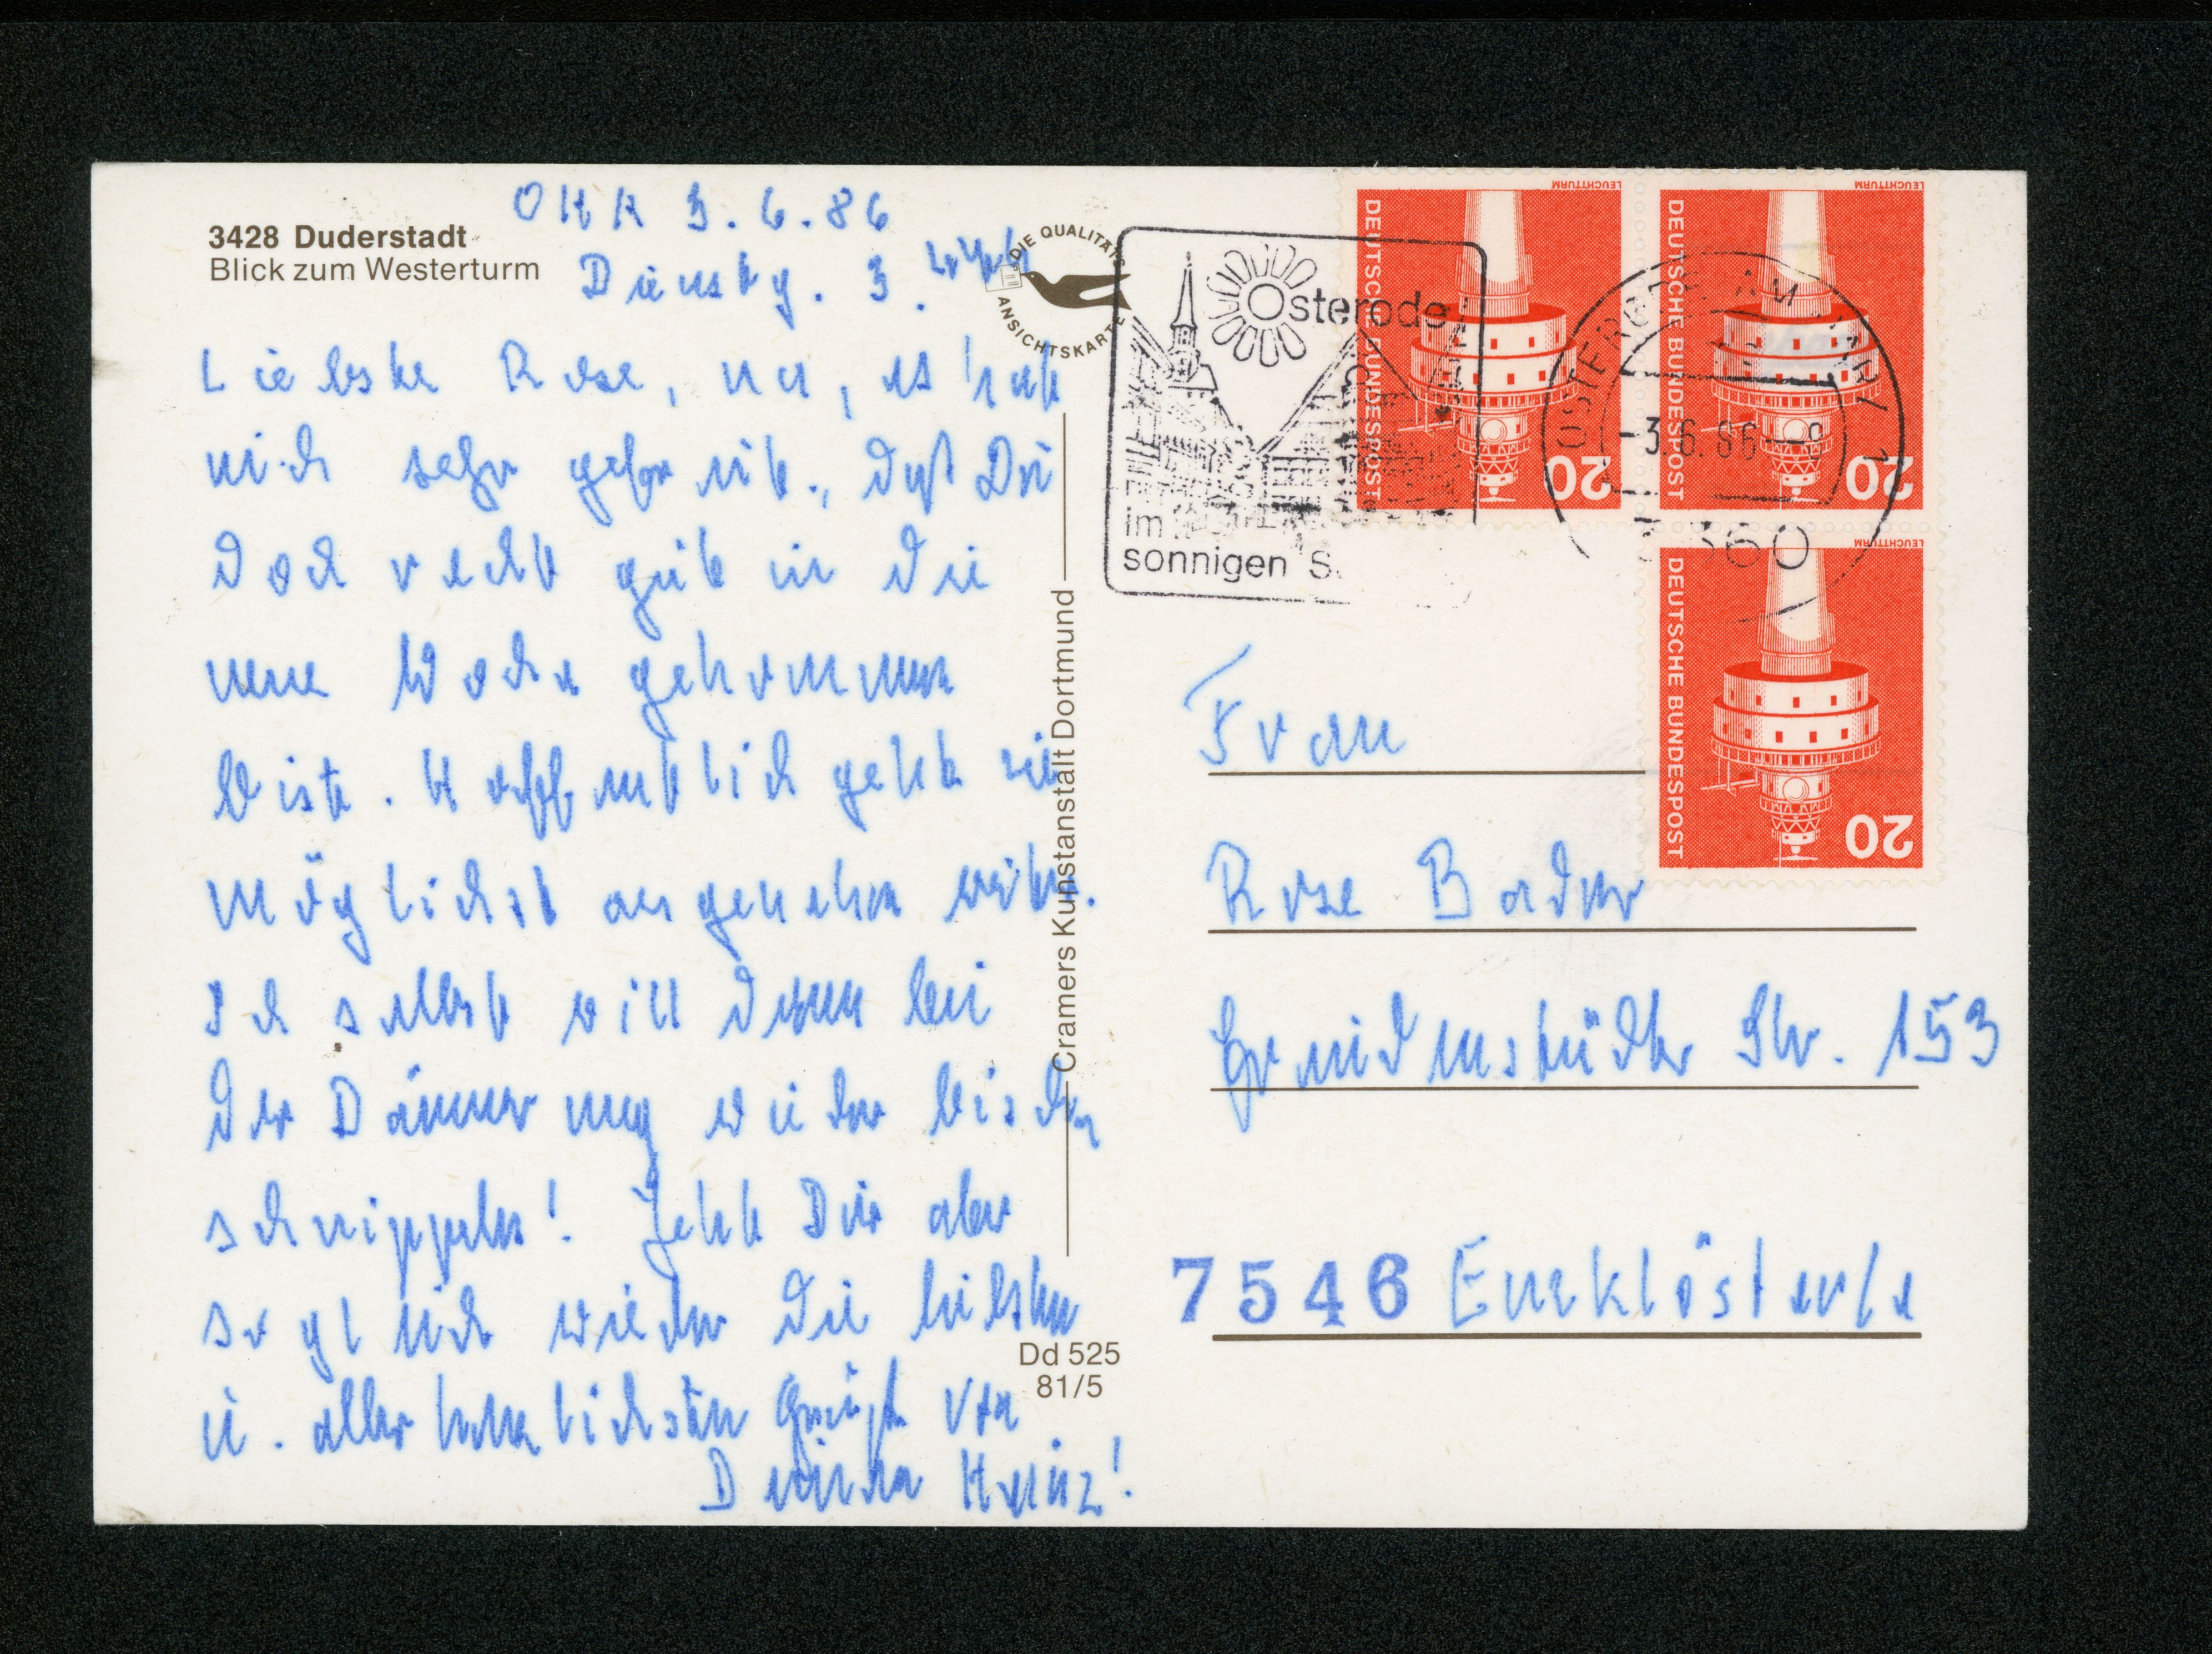 OHA 3.6.86
3428 Duderstadt
Blick zum Westerturm
Dienstg. 3.
DIE QUALITÄTS
ANSICHTSKARTE
Liebste Rose, na, es hat
mich sehr gefreut, daß Du
doch recht gut in die
neue Woche gekommen
bist. Hoffentlich geht sie
möglichst angenehm weiter.
Ich selbst will dann bei
der Dämmerung wieder bischen
schnippeln! Jetzt Dir aber
sogleich wieder die liebsten
u. allerherzlichsten Grüße von
Deinem Heinz!
Cramers Kunstanstalt Dortmund
Dd 525
81/5
Osterode
im
sonnigen S
OSTERODE AM HARZ 1
-3.6.86--9
3360
LEUCHTTURM
DEUTSCHE BUNDESPOST
20
LEUCHTTURM
DEUTSCHE BUNDESPOST
20
LEUCHTTURM
DEUTSCHE BUNDESPOST
20
Frau
Rose Bader
Str. 153
7546 Enzklösterle